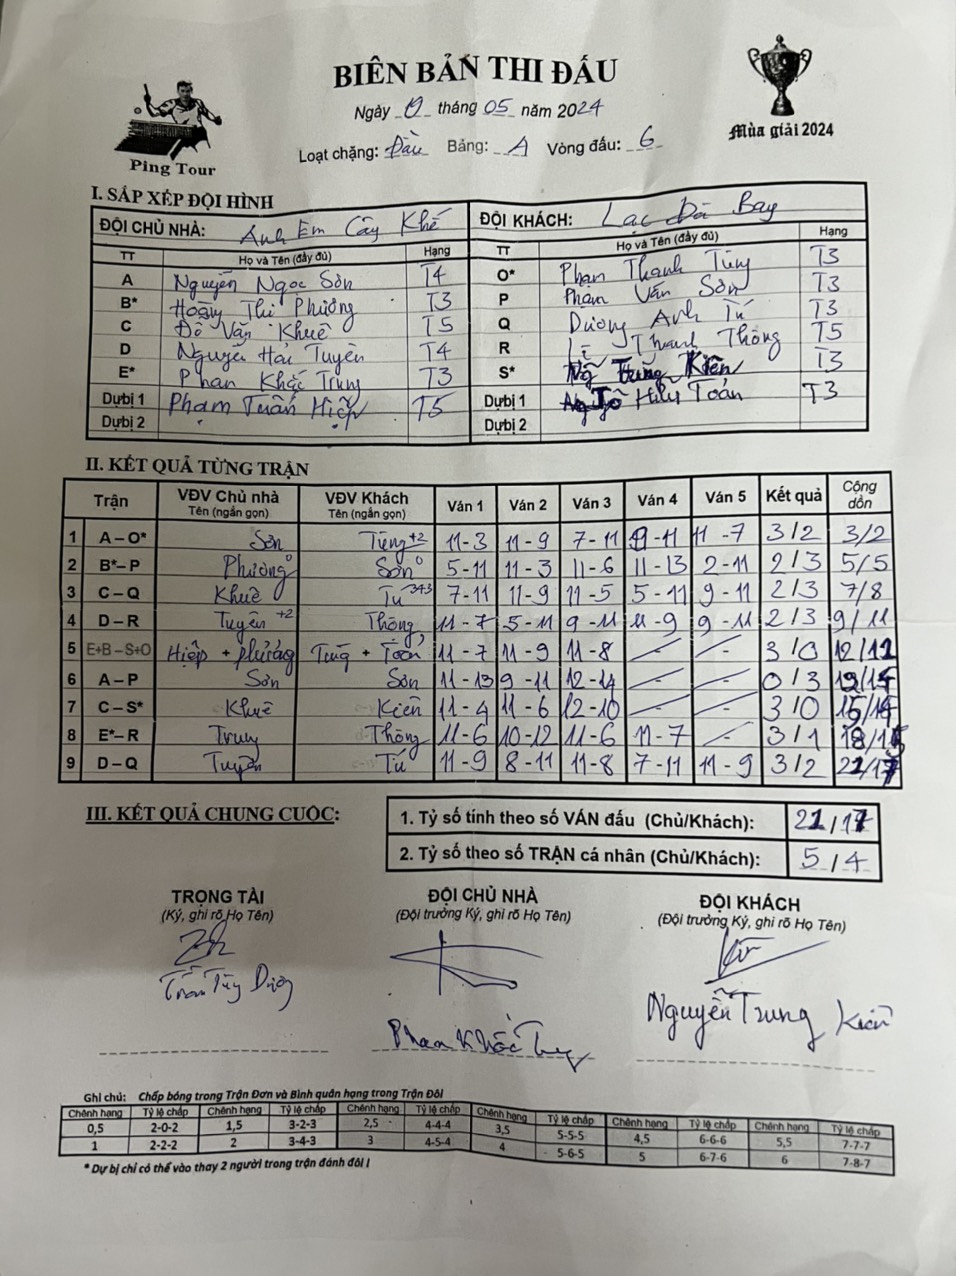 BIÊN BẢN THI ĐẤU
Ngày tháng 05 năm 2024
Loạt chặng: Đầu Bảng: A Vòng đấu: 6
Ping Tour
Mùa giải 2024
I. SẮP XẾP ĐỘI HÌNH
ĐỘI CHỦ NHÀ: Anh Em Cây Khế ĐỘI KHÁCH: Lạc Đà Bay
TT Họ và Tên (đầy đủ) Hạng TT Họ và Tên (đầy đủ) Hạng
A Nguyễn Ngọc Sơn T4 O* Phạm Thanh Tùng T3
B* Hoàng Thị Phương T3 P Phạm Văn Sơn T3
C Đỗ Văn Khuê T5 Q Dương Anh Tú T3
D Nguyễn Hải Tuyên T4 R Lê Thanh Thông T5
E* Phan Khắc Trung T3 S* Trung Kiên T3
Dự bị 1 Phạm Tuấn Hiệp T5 Dự bị 1 Hữu Toán T3
Dự bị 2 Dự bị 2
II. KẾT QUẢ TỪNG TRẬN
Trận VĐV Chủ nhà Tên (ngắn gọn) VĐV Khách Tên (ngắn gọn) Ván 1 Ván 2 Ván 3 Ván 4 Ván 5 Kết quả Cộng dồn
1 A – O* Sơn Tùng +2 11-3 11-9 7-11 9-11 11-7 3/2 3/2
2 B* – P Phương Sơn 5-11 11-3 11-6 11-13 2-11 2/3 5/5
3 C – Q Khuê Tú 343 7-11 11-9 11-5 5-11 9-11 2/3 7/8
4 D – R Tuyên +2 Thông 11-7 5-11 9-11 11-9 9-11 2/3 9/11
5 E+B – S+O Hiệp + Phương Tùng + Toán 11-7 11-9 11-8 - - 3/0 12/11
6 A – P Sơn Sơn 11-13 9-11 12-14 - - 0/3
7 C – S* Khuê Kiên 11-4 11-6 12-10 - - 3/0 15/14
8 E* – R Trung Thông 11-6 10-12 11-6 11-7 - 3/1 18/15
9 D – Q Tuyên Tú 11-9 8-11 11-8 7-11 11-9 3/2 21/17
III. KẾT QUẢ CHUNG CUỘC:
1. Tỷ số tính theo số VÁN đấu (Chủ/Khách): 21/17
2. Tỷ số theo số TRẬN cá nhân (Chủ/Khách): 5/4
TRỌNG TÀI ĐỘI CHỦ NHÀ ĐỘI KHÁCH
(Ký, ghi rõ Họ Tên) (Đội trưởng Ký, ghi rõ Họ Tên) (Đội trưởng Ký, ghi rõ Họ Tên)
Trần Tùy Dương Phan Khắc Trung Nguyễn Trung Kiên
Ghi chú: Chấp bóng trong Trận Đơn và Bình quân hạng trong Trận Đôi
Chênh hạng Tỷ lệ chấp Chênh hạng Tỷ lệ chấp Chênh hạng Tỷ lệ chấp Chênh hạng Tỷ lệ chấp Chênh hạng Tỷ lệ chấp Chênh hạng Tỷ lệ chấp
0,5 2-0-2 1,5 3-2-3 2,5 4-4-4 3,5 5-5-5 4,5 6-6-6 5,5 7-7-7
1 2-2-2 2 3-4-3 3 4-5-4 4 5-6-5 5 6-7-6 6 7-8-7
* Dự bị chỉ có thể vào thay 2 người trong trận đánh đôi !